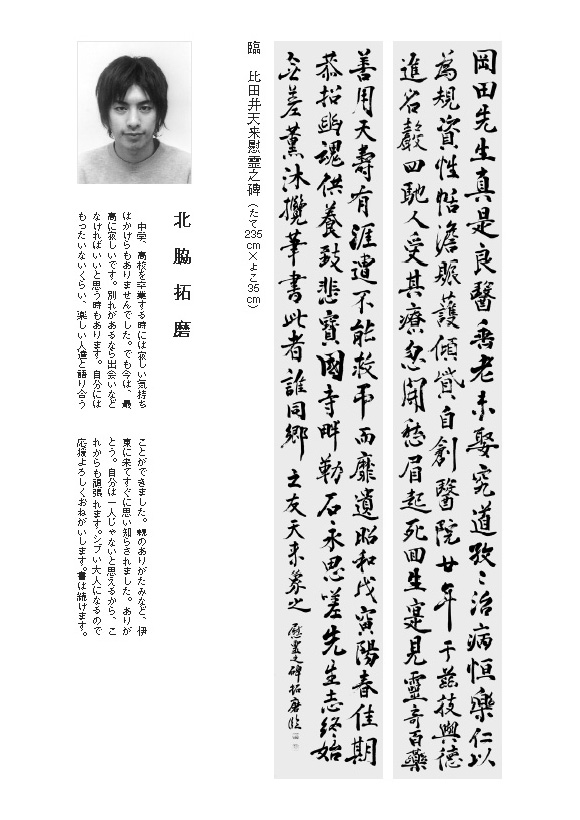 岡田先生真是良醫垂老未娶究道孜〻治病恒樂仁以
為規資性恬澹賑護傾貲自創醫院廿年于茲技與德
進名聲四馳人受其療忽開愁眉起死回生寔見靈奇百藥
善用天壽有涯遭不能救帀而靡遺昭和戊寅陽春佳期
恭招幽魂供養致悲寶國寺畔勒石永思嗟先生志終始
無差薰沐攬筆書此者誰同鄉之友天来象之
慰霊之碑拓磨臨
臨 比田井天来慰霊之碑(たて235cm×よこ35cm)
北脇拓磨
中学、高校を卒業する時には寂しい気持ち
はかけらもありませんでした。でも今は、最
高に寂しいです。別れがあるなら出会いなど
なければいいと思う時もあります。自分には
もったいないくらい、楽しい人達と語り合う
ことができました。親のありがたみなど、伊
東に来てすぐに思い知らされました。ありが
とう。自分は一人じゃないと思えるから、こ
れからも頑張れます。シブい大人になるので
応援よろしくおねがいします。書は続けます。